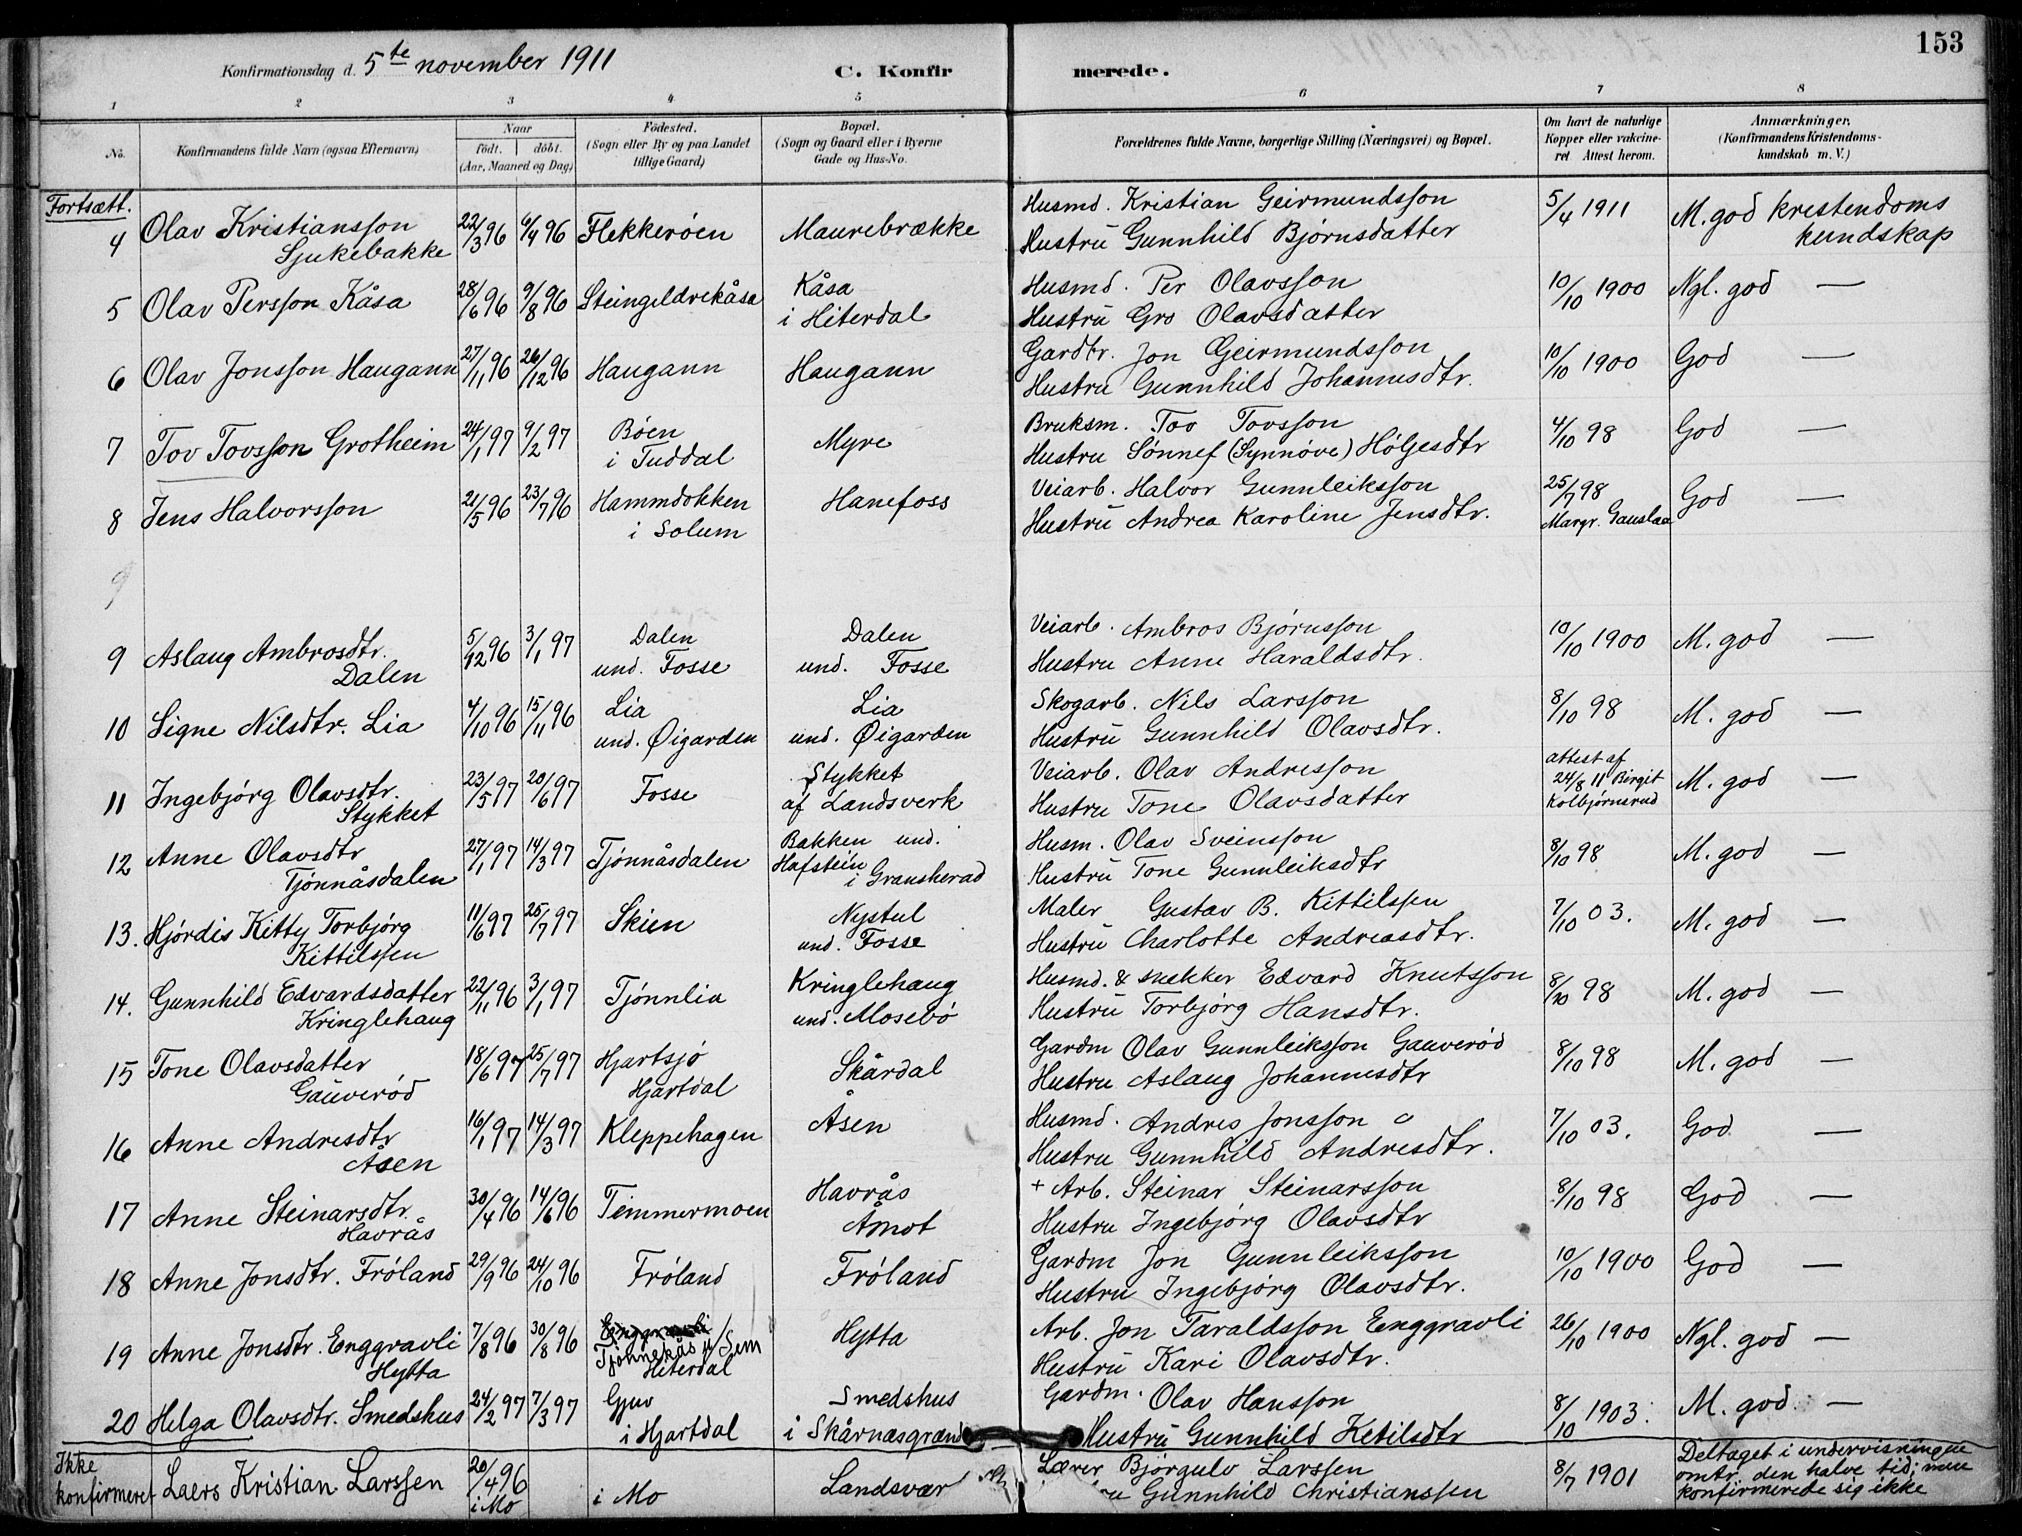 153
Konfirmationsdag d. 5te november 1911 C. Konfirmerede.
1 2 3 4 5 6 7 8
No. Konfirmandens fulde Navn (ogsaa Efternavn) Naar født. døbt. (Aar, Maaned og Dag) Fødested. (Sogn eller By og paa Landet tillige Gaard) Bopæl. (Sogn og Gaard eller i Byerne Gade og Hus-No. Forældrenes fulde Navne, borgerlige Stilling (Næringsvei) og Bopæl. Om havt de naturlige Kopper eller vakcineret Attest herom. Anmærkninger. (Konfirmandens Kristendomskundskab m. V.)
Fortsætt.
4 Olav Kristiansson Sjukebakke 22/3 96 6/4 96 Flekkerøen Maurebrække Husmd. Kristian Geirmundsson Hustru Gunnhild Bjørnsdatter 5/4 1911 M. god kristendoms kundskap
5 Olav Persson Kåsa 28/6 96 9/8 96 Steingildrekåsa Kåsa i Hiterdal Husmd. Per Olavsson Hustru Gro Olavsdatter 10/10 1900 Ngl. god —
6 Olav Jonsson Haugann 27/11 96 26/12 96 Haugann Haugann Gardbr. Jon Geirmundsson Hustru Gunnhild Johannesdtr. 10/10 1900 God —
7 Tov Tovsson Grotheim 24/1 97 9/2 97 Bøen i Tuddal Myre Bruksm. Tov Tovsson Hustru Sønnef (Synnøve) Hølgesdtr 4/10 98 God —
8 Jens Halvorsson 21/5 96 23/7 96 Hammdokken i Solum Hanefoss Veiarb. Halvor Gunnleiksson Hustru Andrea Karoline Jensdtr. 25/7 98 Margr. Gauslaa God —
9
9 Aslaug Ambrosdtr. Dalen 5/12 96 3/1 97 Dalen und. Fosse Dalen und. Fosse Veiarb. Ambros Bjørnsson Hustru Anne Haraldsdtr. 10/10 1900 M. god —
10 Signe Nilsdtr. Lia 4/10 96 15/11 96 Lia und. Øigarden Lia und. Øigarden Skogarb. Nils Larsson Hustru Gunnhild Olavsdtr. 8/10 98 M. god —
11 Ingebjørg Olavsdtr. Stykket 23/5 97 20/6 97 Fosse Stykket af Landsverk Veiarb. Olav Andresson Hustru Tone Olavsdatter attest af 24/8 11 Birgit Kolbjørnsrud M. god —
12 Anne Olavsdtr Tjønnåsdalen 27/1 97 14/3 97 Tjønnåsdalen Bakken und. Hafstein i Gransherad Husm. Olav Sveinsson Hustru Tone Gunnleiksdtr 8/10 98 M. god —
13. Hjørdis Kitty Torbjørg Kittilssen 11/6 97 25/7 97 Skien Nystul und. Fosse Maler Gustav B. Kittilssen Hustru Charlotte Andreasdtr. 7/10 03. M. god —
14. Gunnhild Edvardsdatter Kringlehaug 22/11 96 3/1 97 Tjønnlia Kringlehaug und. Mosebø Husmd. & snekker Edvard Knutsson Hustru Torbjørg Hansdtr. 8/10 98 M. god —
15 Tone Olavsdatter Gauverød 18/6 97 25/7 97 Hjartsjø Hjartdal Skårdal Gardm Olav Gunnleiksson Gauverød Hustru Aslaug Johannesdtr 8/10 98 M. god —
16 Anne Andresdtr Åsen 16/1 97 14/3 97 Kleppehagen Åsen Husmd. Andres Jonsson Hustru Gunnhild Andresdtr. 7/10 03. God —
17 Anne Steinarsdtr. Havrås 30/4 96 14/6 96 Temmermoen Havrås Åmot + Arb. Steinar Steinarsson Hustru Ingebjørg Olavsdtr 8/10 98 God —
18 Anne Jonsdtr. Frøland 29/9 96 24/10 96 Frøland Frøland Gardm Jon Gunnleiksson Hustru Ingebjørg Olavsdtr. 10/10 1900 God —
19 Anne Jonsdtr. Enggravli Hytta 7/8 96 30/8 96 Enggravli Tjønnekås u/ Sem Hiterdal Hytta Arb. Jon Taraldsson Enggravli Hustru Kari Olavsdtr. 26/10 1900 Ngl. god —
20 Helga Olavsdtr. Smedshus 24/2 97 7/3 97 Gjuv i Hjartdal Smedshus i Skårnæsgrænd Gardm. Olav Hansson Hustru Gunnhild Ketilsdtr 8/10 1903. M. god. —
Ikke konfirmeret Laers Kristian Larssen 20/4 96 i Mo i Mo Landsvær Lærer Bjørgulv Larssen Gunnhild Christianssen 8/7 1901 Deltaget i undervisningen omtr. den halve tid; men konfirmerede sig ikke